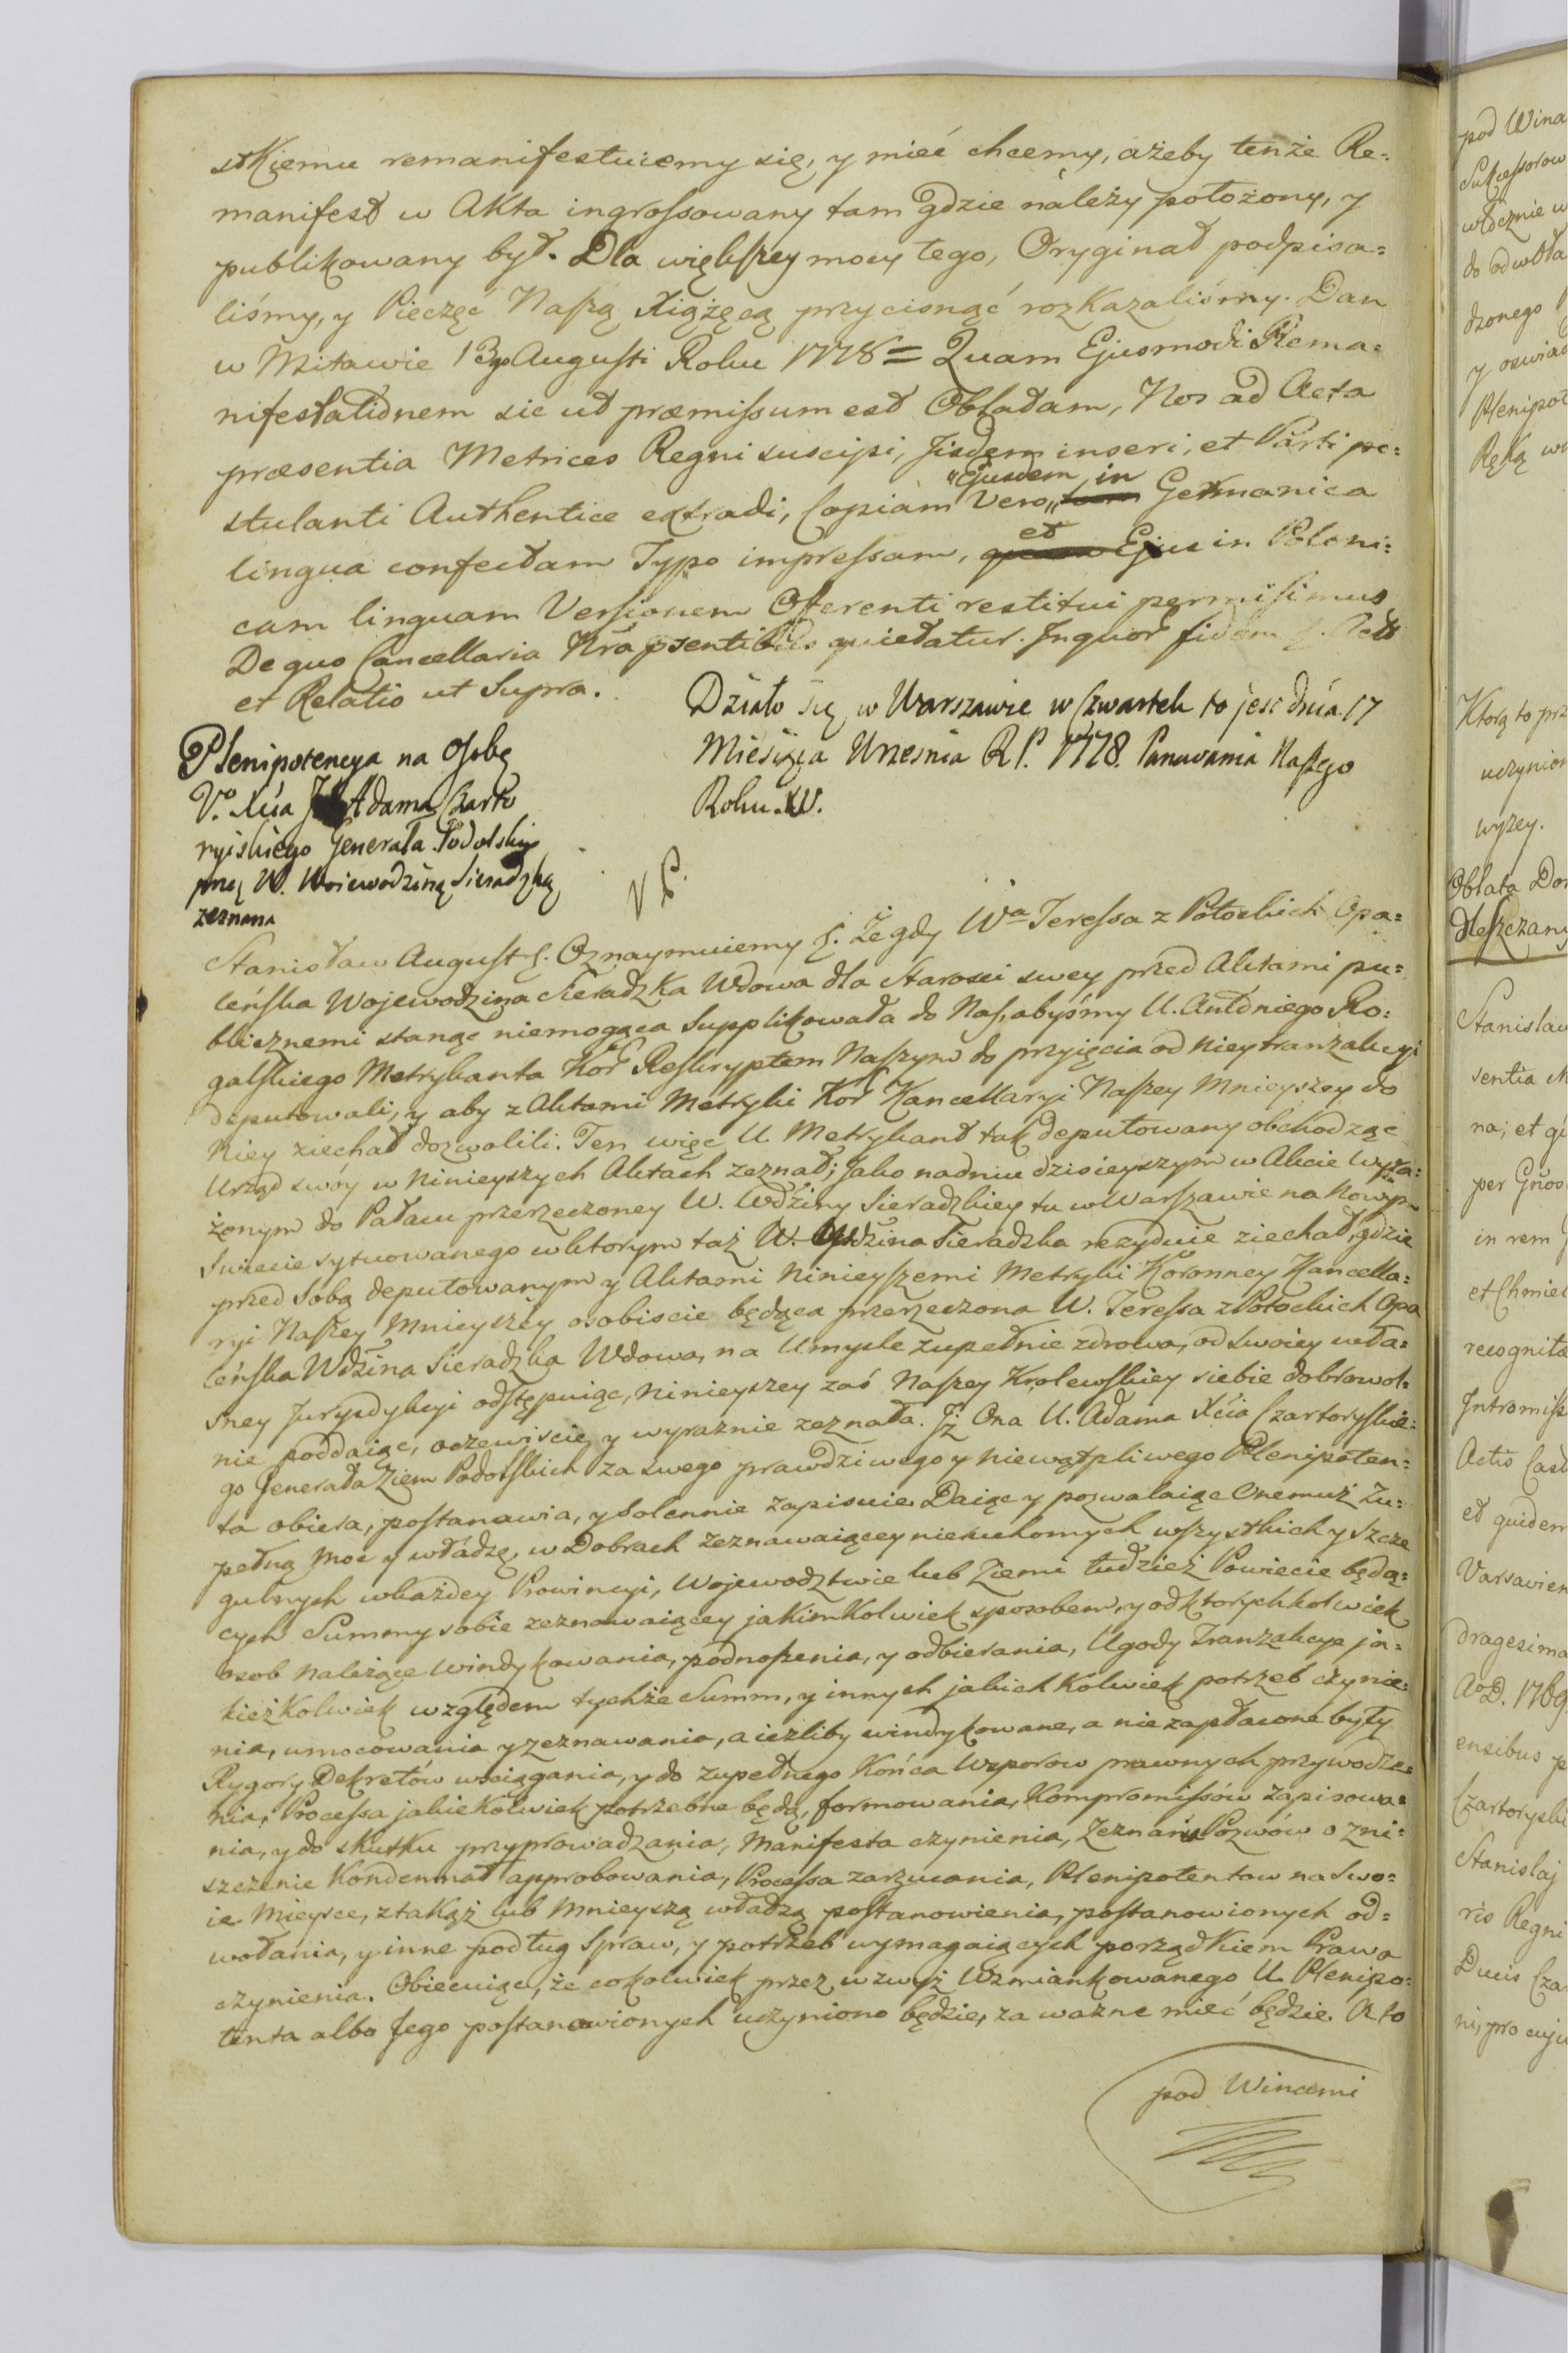 stkiemu remanifestuiemy się, y mieć chcemy, ażeby tenże Re=
manifest w Akta ingrossowany tam gdzie należy położony, y
publikowany był. Dla większey mocy tego, Oryginał podpisa=
liśmy, y Pieczęć Naszą Xiążęcą przycisnąć rozkazaliśmy. Dan
w Mitawie 13go Augusti Roku 1778 = Quam Ejusmodi Rema=
nifestationem sic ut præmissum est Oblatam, Nos ad Acta
præsentia Metrices Regni suscipi, Jisdem inseri, et Parti po=
"Ejusdem in
stulanti Authentice extradi, Copiam Vero" Germanica
et
lingua confectam Typo impressam, Ejus in Poloni=
cam linguam Versionem Offerenti restitui permisimus
De quo Cancellaria Nra psentibus quietatur. Jnquor fidem &. Acta
et Relatio ut Supra.
Działo się w Warszawie w Czwartek to jest dnia 17
Miesiąca Wrzesnia R P. 1778. Panowania Naszego
Roku XV.
Plenipotencya na Osobę
Vo. Xcia Adama Czarto
ryiskiego Generała Podolskie
przez W. Woiewodzinę Sieradzką
zeznana
Stanisław August &. Oznaymuiemy &. Że gdy Wa Teressa z Potockich Opa=
leńska Wojewodzina Sieradzka Wdowa dla Starosci swey przed Aktami pu=
blicznemi stanąć niemogąca Supplikowała do Nas, abyśmy U. Antoniego Ro=
galskiego Metrykanta Kor Reskryptem Naszym do przyięcia od Niey tranzakcyi
deputowali, y aby z Aktami Metryki Kor Kancellaryi Naszey Mnieyszey do
Niey ziechał dozwolili. Ten więc U. Metrykant tak deputowany obchodząc
Urząd swóy w Ninieyszych Aktach zeznał; Jako nadniu dzisieyszym w Akcie wyra=
żonym do Pałacu przerzeczoney W. Wdziny Sieradzkiey tu w Warszawie na Nowym
Swiecie sytuowanego w ktorym taż W. Wdzina Sieradzka rezyduie ziechał, gdzie
przed Sobą deputowanym y Aktami Ninieyszemi Metryki Koronney Kancella=
ryi Naszey Mnieyszey osobiscie będąca przerzeczona W. Teressa z Potockich Opa
leńska Wdzina Sieradzka Wdowa, na Umysle zupełnie zdrowa, od Swoiey wła=
sney Jurysdykcyi odstępuiąc, Ninieyszey zaś Naszey Krolewskiey siebie dobrowol=
nie poddaiąc, oczewiscie y wyraznie zeznała. Jż Ona U. Adama Xcia Czartoryskie=
go Generała Ziem Podolskich za swego prawdziwego y Niewątpliwego Plenipoten=
ta obiera, postanawia, y Solennie zapisuie. Daiąc y pozwalaiąc Onemuż Zu=
pełną Moc y władzę, w Dobrach Zeznawaiącey nieruchomych wszystkich y Szcze
gulnych w każdey Prowincyi, Wojewodztwie lub Ziemi tudzież Powiecie będą=
cych Summy sobie zeznawaiącey jakimkolwiek sposobem, y od ktorychkolwiek
osob Należące windykowania, podnoszenia, y odbierania, Ugody Tranzakcye ja=
kieżkolwiek względem tychże Summ, y innych jakichkolwiek potrzeb czynie=
nia, umocowania y zeznawania, a ieżliby windykowane, a niezapłacone były
Rygory Dekretów wsciągania, y do zupełnego Końca Wzporow prawnych przywodze=
nia, Processa jakiekolwiek potrzebne będą, formowania, Kompromissów zapisowa=
nia, y do skutku przyprowadzania, Manifesta czynienia, Zeznań Pozwów o zni=
szczenie Kondemnat approbowania, Processa zarzucania, Plenipotentow na Swo=
ie Mieysce, z takąż lub Mnieyszą władzą postanowienia, postanowionych od=
wołania, y inne podług Spraw, y potrzeb wymagaiących porządkiem Prawa
czynienia. Obiecuiąc, że cokolwiek przez wzwyż Wzmiankowanego U. Plenipo=
tenta albo Jego postanowionych uczyniono będzie, za wazne mieć będzie. A to
pod Winami
pod Wina
Sukcessorow
włócznie w
do odwoła
dzonego
y oswiad
Plenipot
Ręką
Ktorą to prz
uczynion
wyzey.
Oblata Don
Stanislau
sentia M
na; et qu
per Gnos
in rem
et Chmiel
recognita
Jntromiss
Actis Cast
et quidem
Varsavien
dragesima
AoD. 1769
ensibus p
Czartoryski
Stanislaj
ris Regni
Ducis Cza
ni, pro cuju